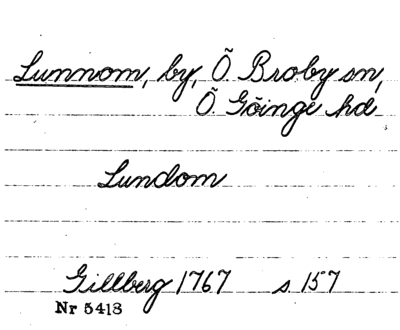 Lunnom, by, Ö. Broby sn,
Ö. Göinge hd
Lundom
Gillberg 1767 s. 157
Nr 5418